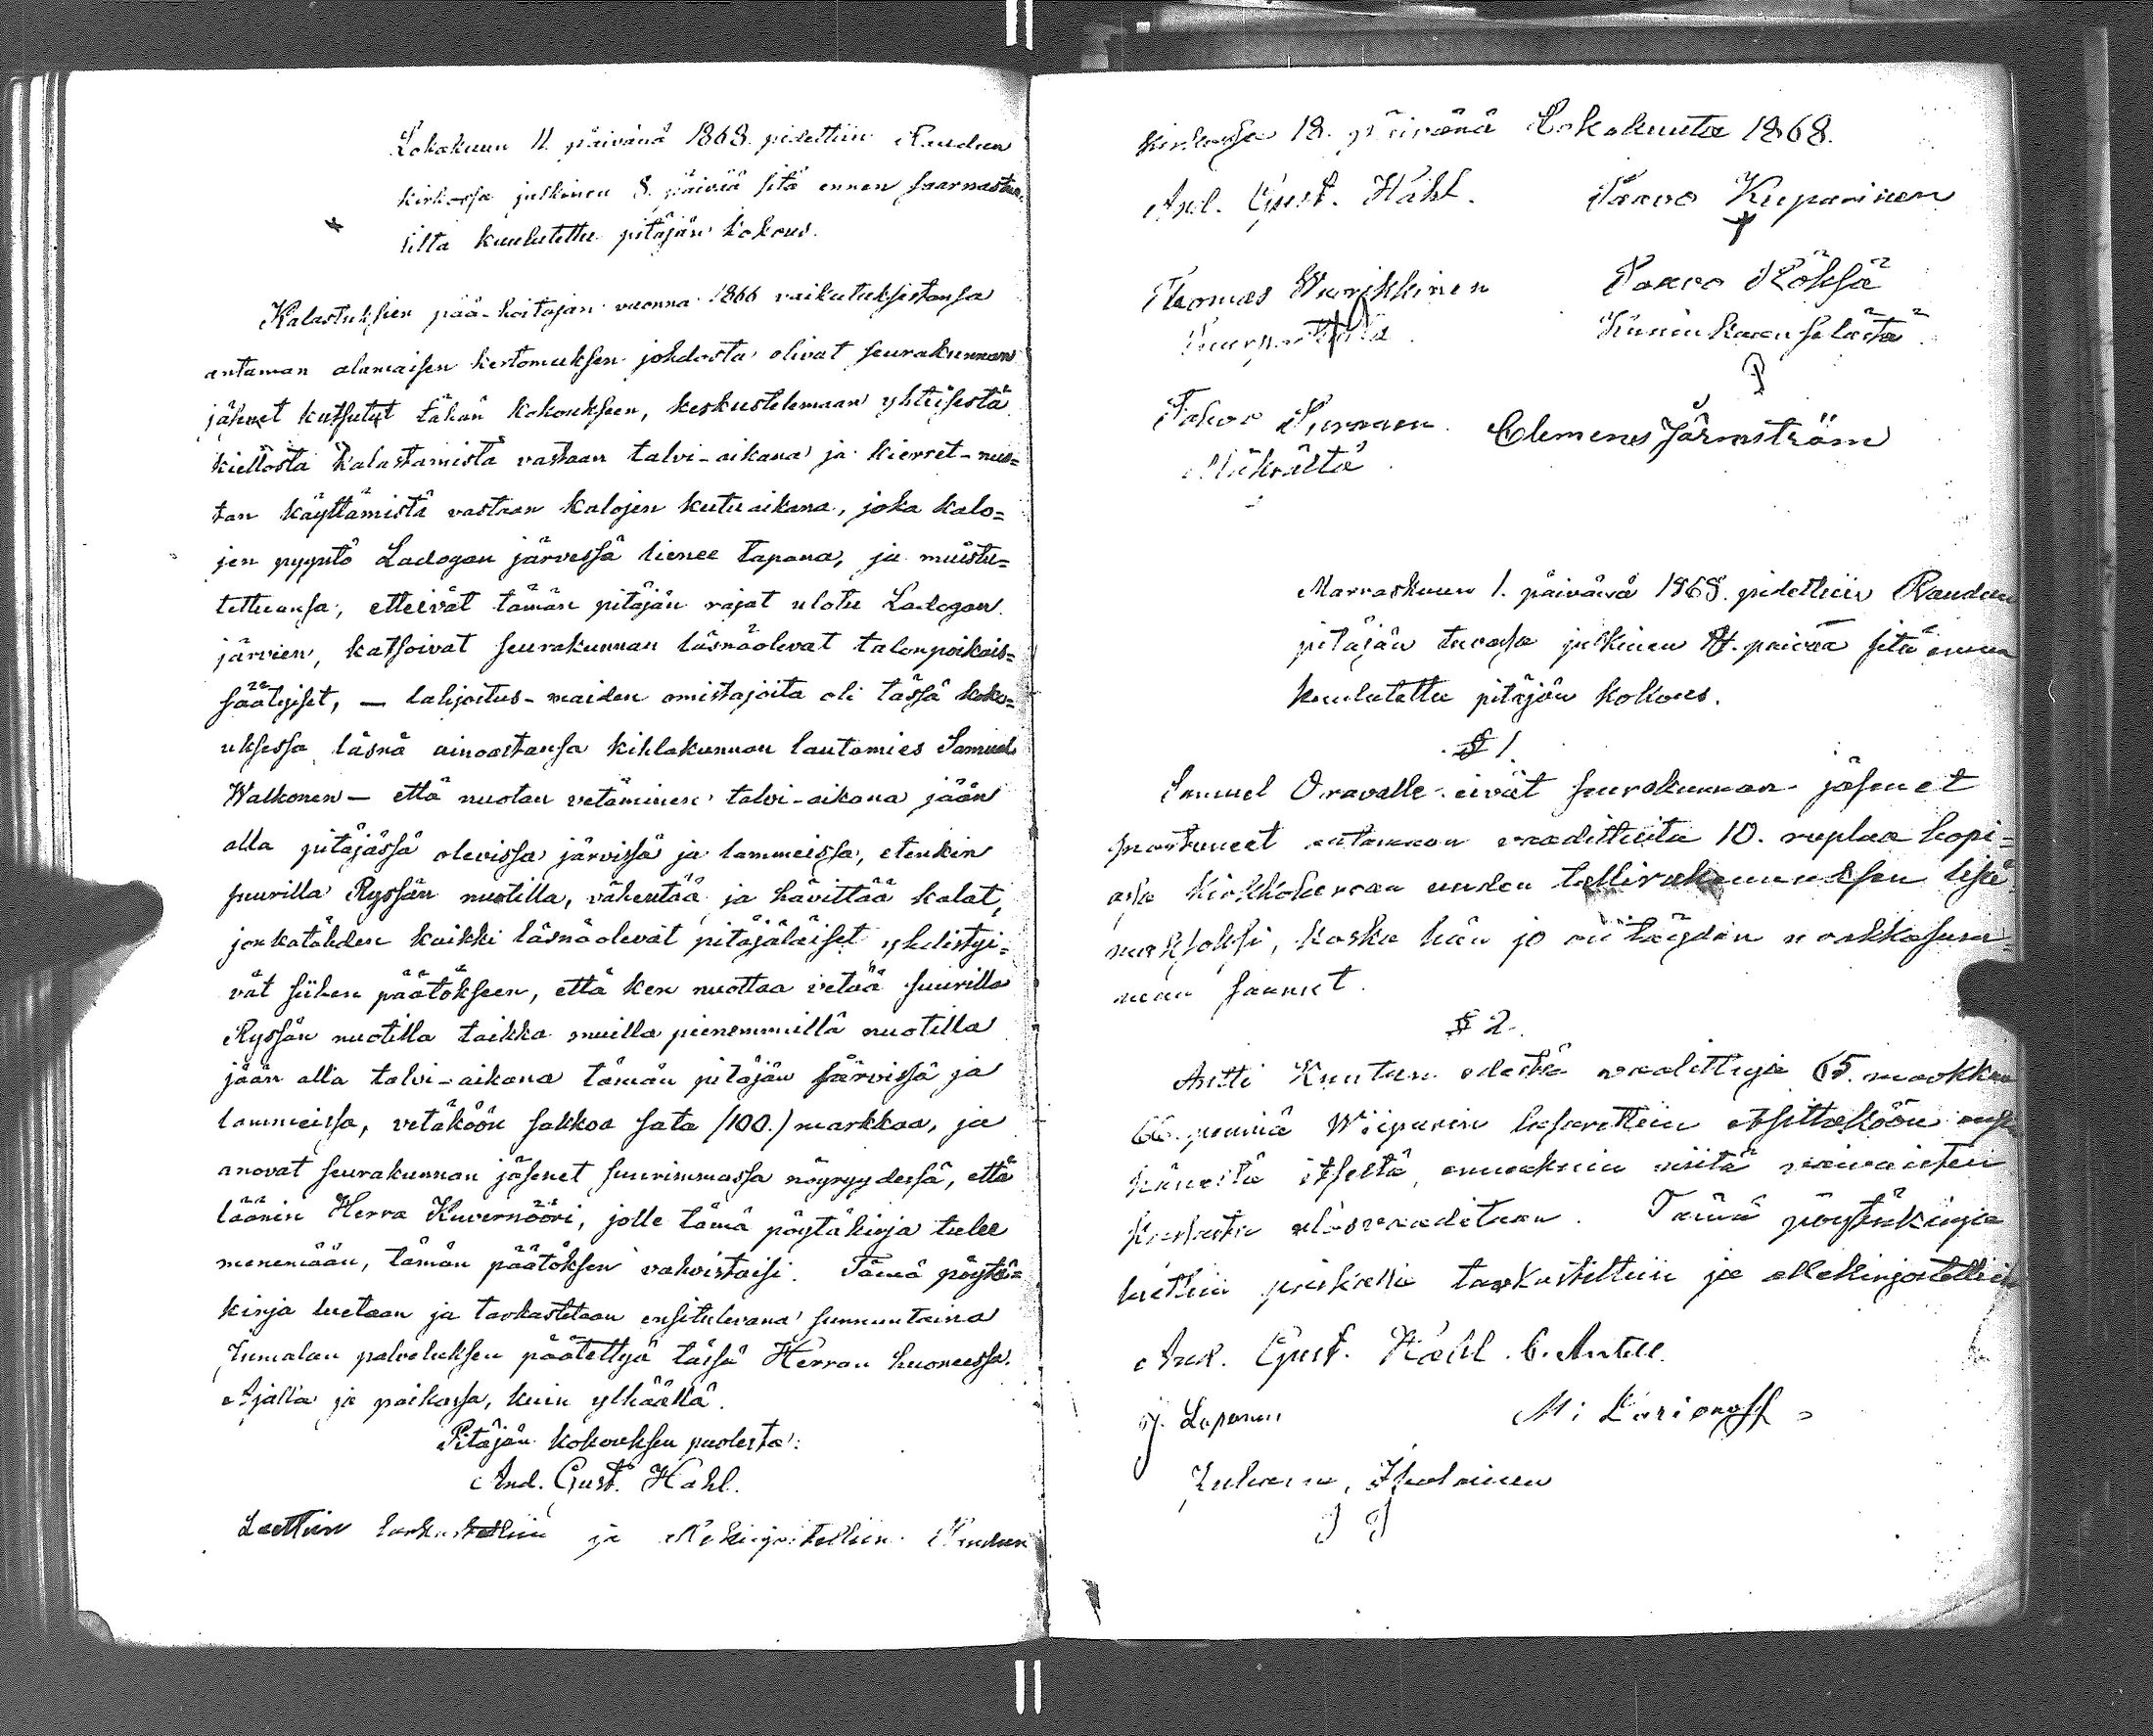 Lokakuun 11. päivänä 1868. pidettiin Raudun
kirkossa julkinen 8. päivää sitä ennen saarnastuo-
lilta kuulutettu pitäjän kokous.
Kalastuksien pää-hoitajan vuonna 1866 vaikutuksistansa
antaman alamaisen kertomuksen johdosta olivat seurakunnan
jäsenet kutsutut tähän kokoukseen, keskustelemaan yhteisestä
kiellosta kalastamista vastaan talvi-aikana ja kierret-nuo=
tan käyttämistä vastaan kalojen kutuaikana, joka kalo=
jen pyyntö Ladogan järvessä lienee tapana, ja muistu=
tettuansa, etteivät tämän pitäjän rajat ulotu Ladogan
järvien, katsoivat seurakunnan läsnäolevat talonpoikais=
säätyiset, — lahjoitus-maiden omistajoita oli tässä koko=
uksessa läsnä ainoastansa kihlakunnan lautamies Samuel
Walkonen — että nuotan vetäminen talvi-aikana jään
alla pitäjässä olevissa järvissä ja lammeissa, etenkin
suurilla Ryssän nuotilla, vähentää ja hävittää kalat,
jonkatähden kaikki läsnäolevat pitäjäläiset yhdistyi=
vät siihen päätökseen, että ken nuottaa vetää suurilla
Ryssän nuotilla taikka muilla pienemmillä nuotilla
jään alla talvi-aikana tämän pitäjän järvissä ja
lammeissa, vetäköön sakkoa sata /100./ markkaa, ja
anovat seurakunnan jäsenet suurimmassa nöyryydessä, että
läänin Herra Kuvernööri, jolle tämä pöytäkirja tulee
menemään, tämän päätöksen vahvistaisi. Tämä pöytä=
kirja luetaan ja tarkastetaan ensitulevana sunnuntaina
Jumalan palveluksen päätettyä tässä Herran huoneessa.
Ajalla ja paikassa, kuin ylhäällä.
Pitäjän kokouksen puolesta:
And. Gust. Hahl.
Luettiin tarkastettiin ja allekirjoitettiin Raudun
kirkossa 18. päivänä Lokakuuta 1868.
And. Gust. Hahl. Paavo Kuparinen
Thomas Paavo Köhsä
Kuninkaanselästä
Clemens Järnström
Mäkrältä
Marraskuun 1. päivänä 1868. pidettiin Raudun
pitäjän tuvassa julkinen 14. päivää sitä ennen
kuulutettu pitäjän kokous.
§ 1.
Samuel Oravalle eivät seurakunnan jäsenet
suostuneet antamaan vaadittuita 10. ruplaa hopi=
assa kirkkoherran uuden tallirakennuksen lisä
maksoksi, koska hän jo on täyden urakkasum=
man saanut.
§ 2.
Antti Knutin edestä vaadittuja 65. markkaa
66. penniä Wiipurin lasarettiin etsittäköön ensin
häneltä itseltä, ennenkuin niitä vaivaisten
kassasta ulosvaaditaan. Tämä pöytäkirja
luettiin julkisesti tarkastettiin ja allekirjoitettiin
And. Gust. Hahl. C. Antell.
J. Laponen M: Larionoff
Juhana Ikolainen